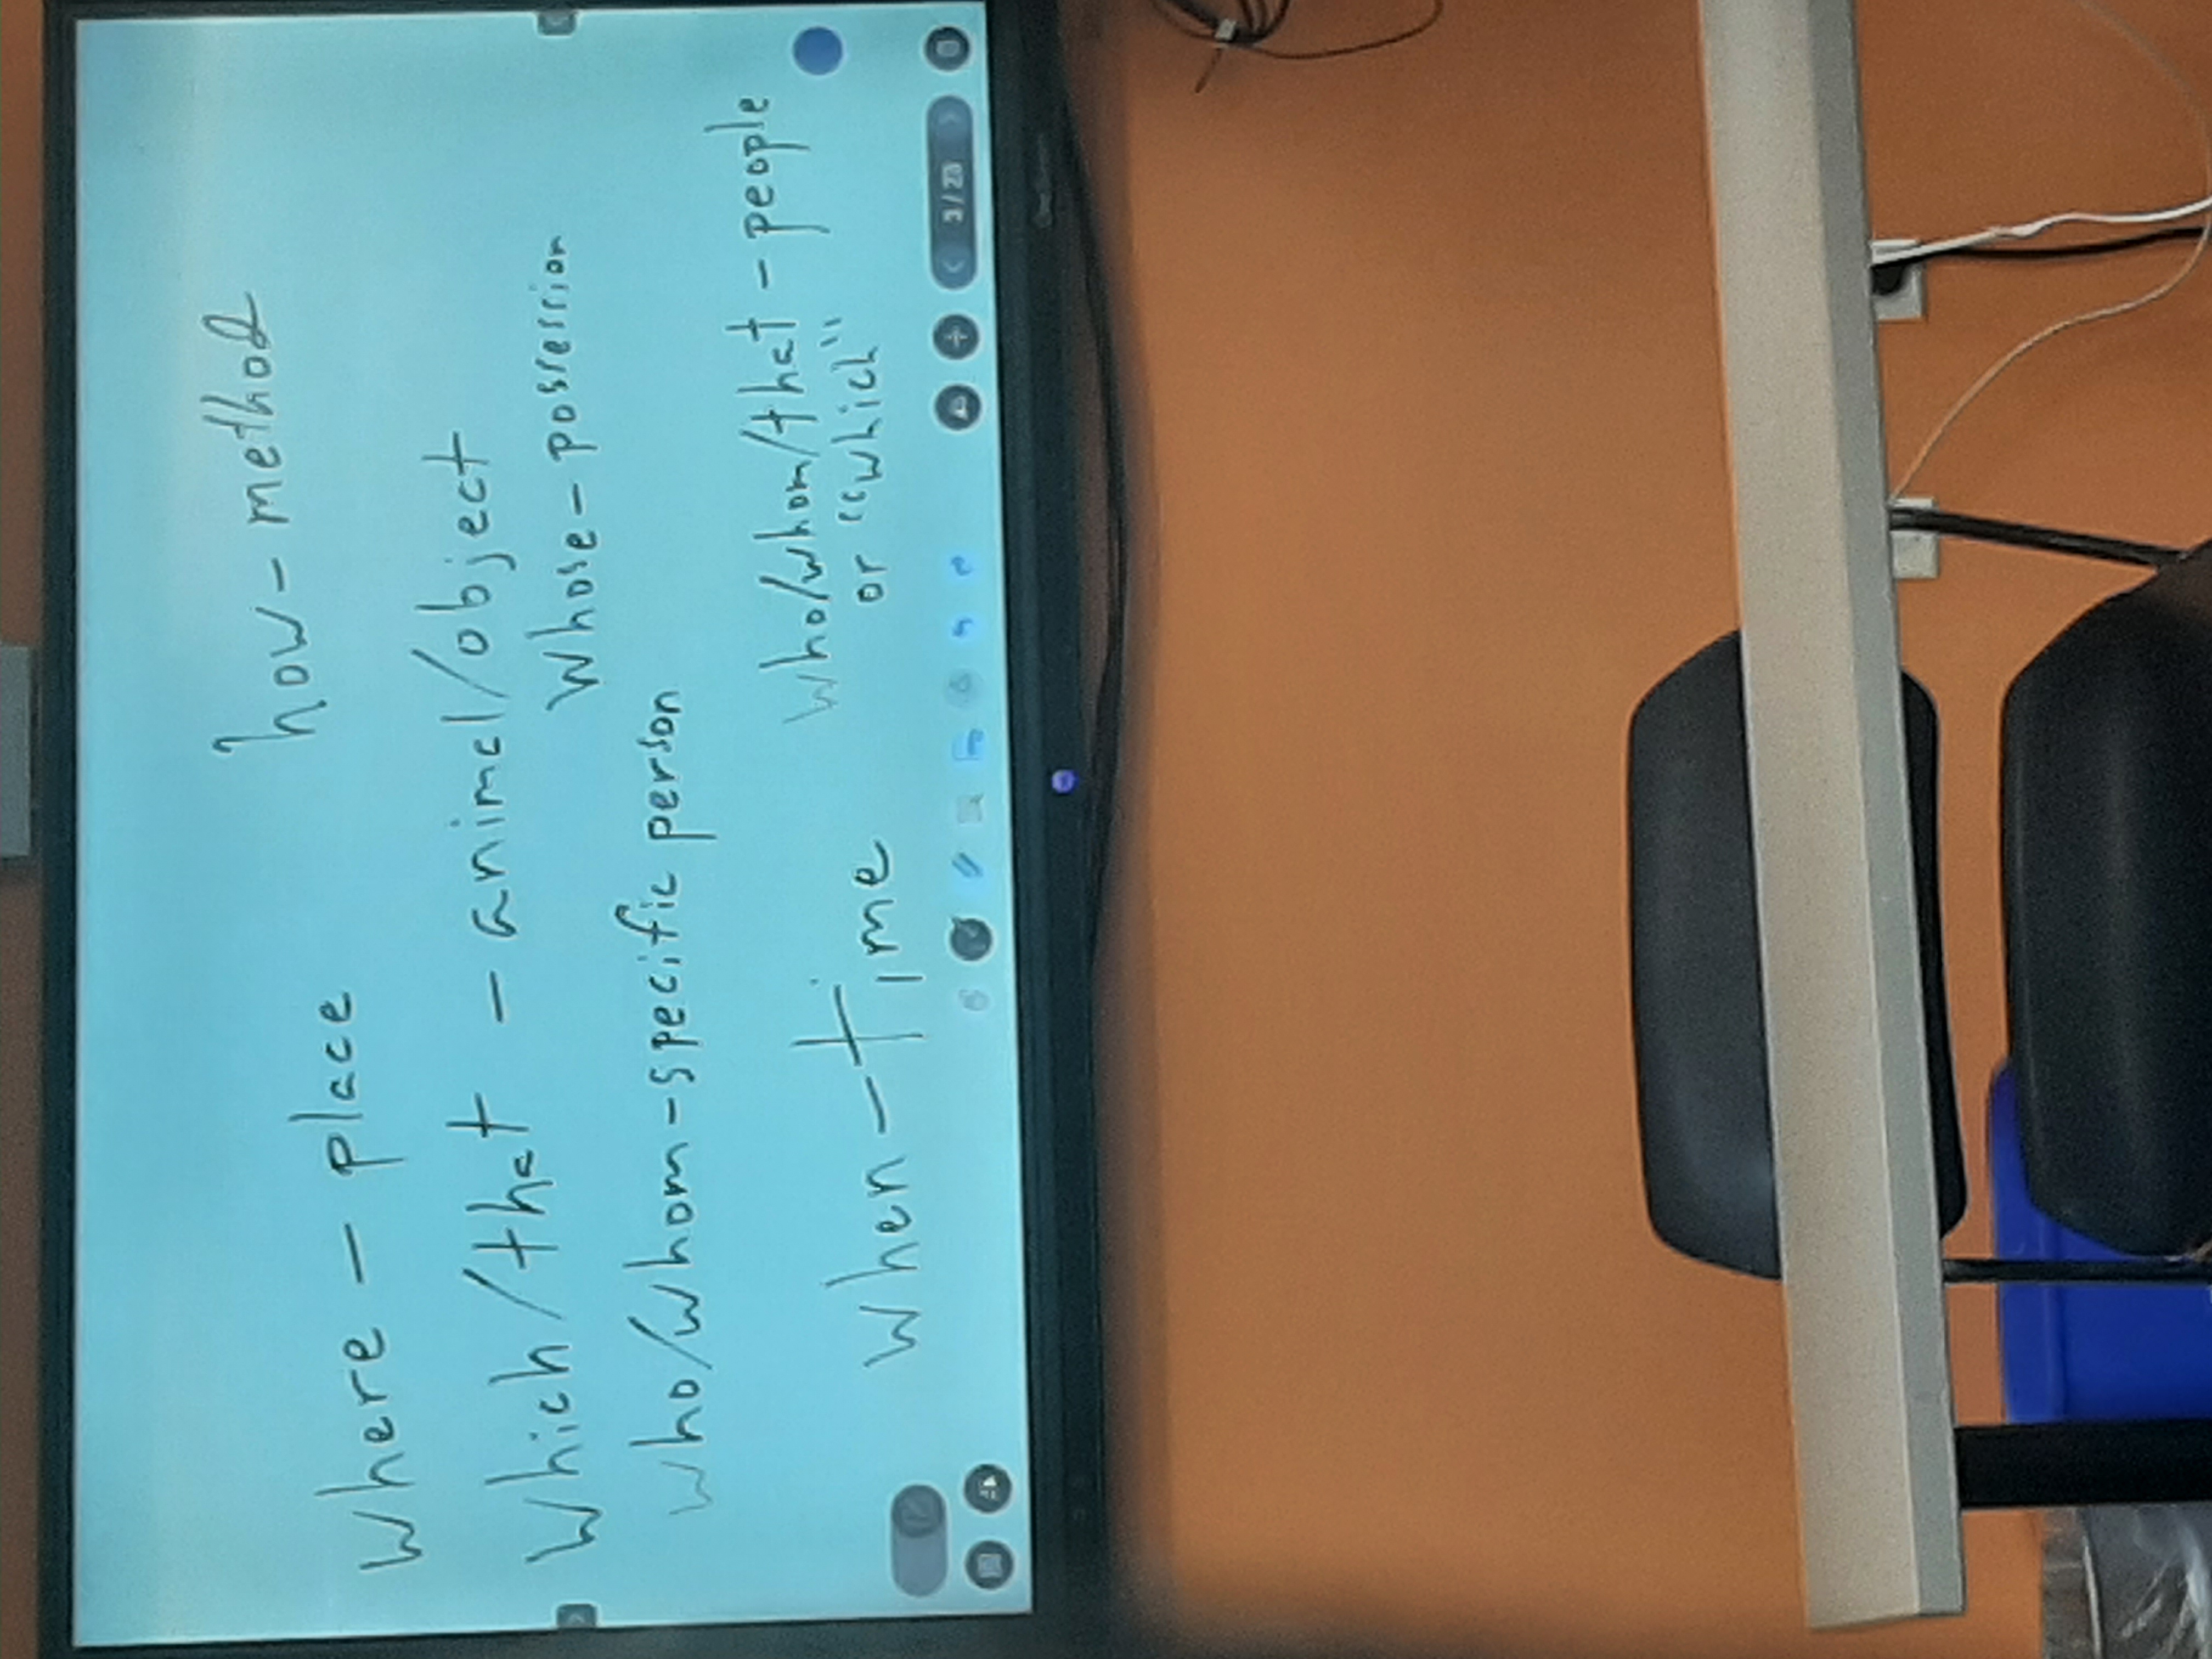 how - method
where - place
which/that - animal/object
whose - possession
who/whom - specific person
who/whom/that - people
or "which"
when - time
3/23